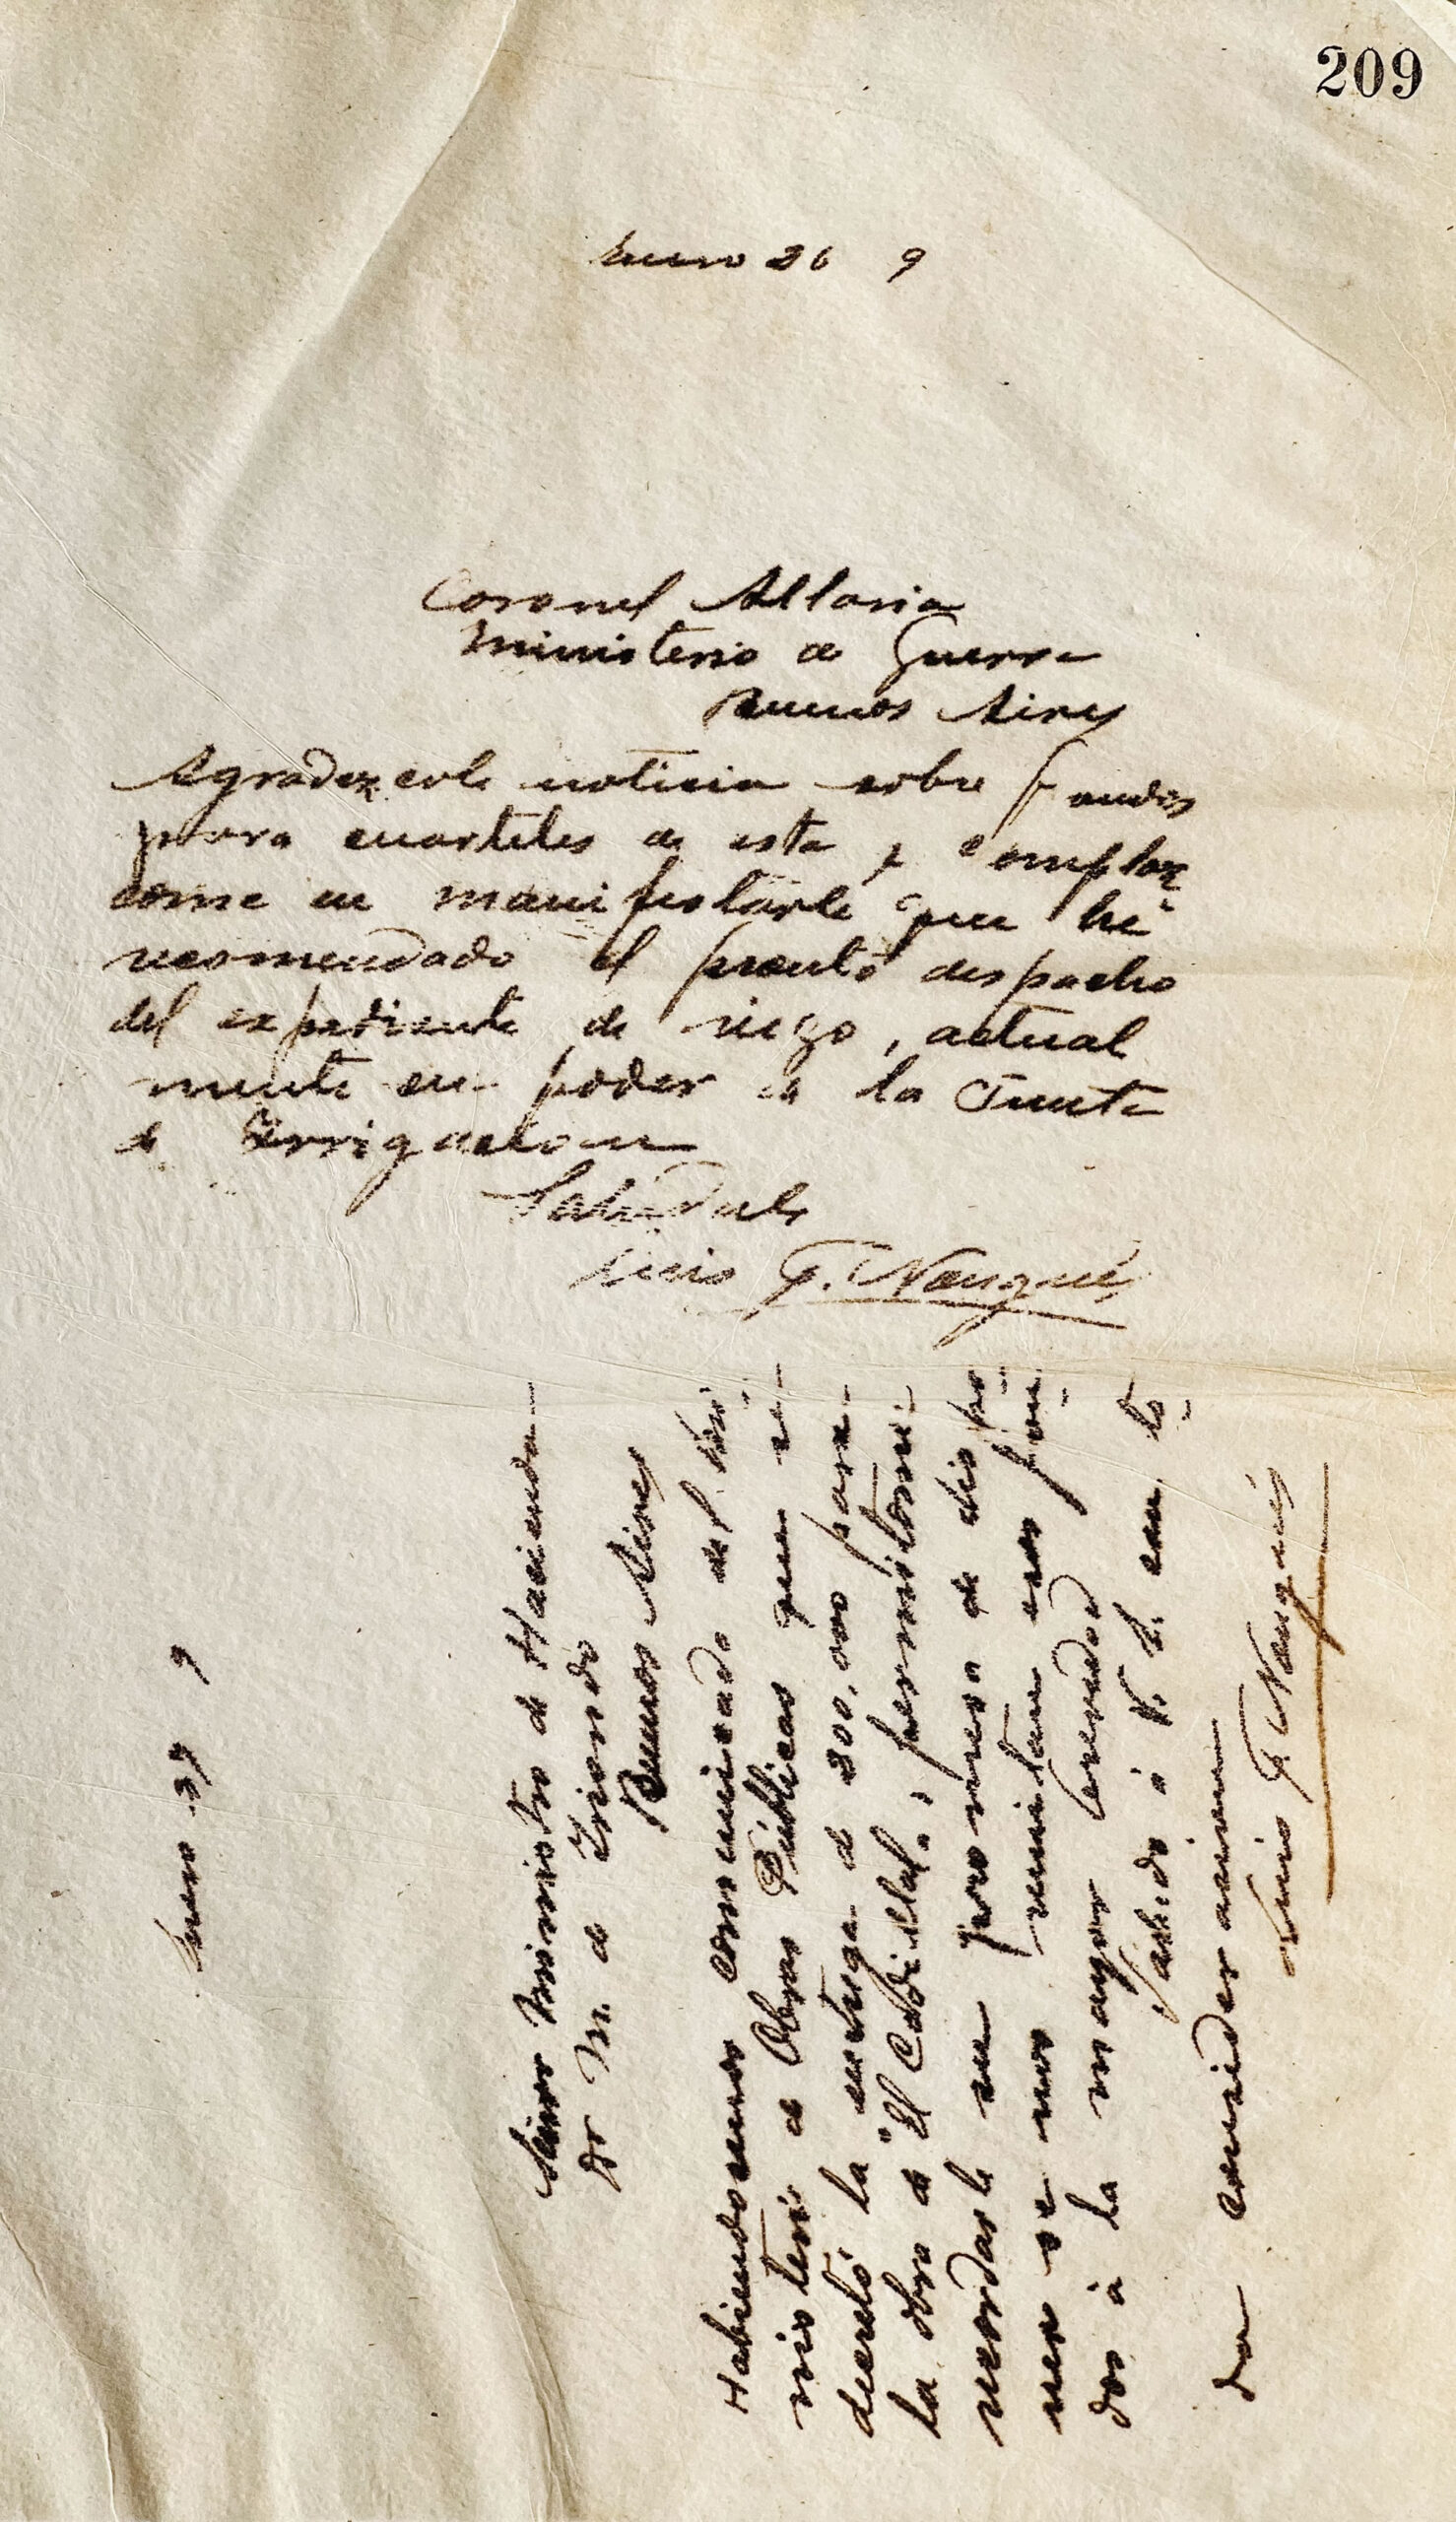 209
Enero 26 9
Coronel Allaria
Ministerio de Guerra
Buenos Aires
Agradezcole noticia sobre fondos
para cuarteles de esta y complaz
come en manifestarle que hé
recomendado el pronto despacho
del expediente de riego, actual
mente en poder de la Junta
de Irrigacion
Salúdale
Luis F. Nougués
Enero 27 9
Señor Ministro de Hacienda
Dr M. de Iriondo
Buenos Aires
Habiendosenos comunicado del Mi-
nisterio de Obras Públicas que se
decretó la entrega de 200.000 para
la obra de "El Cadillal", permitome
recordarle su promesa de dispo-
ner se nos remitan esos fon-
dos á la mayor brevedad
Saludo á V. E. con to-
da consideracion
Luis F. Nougués